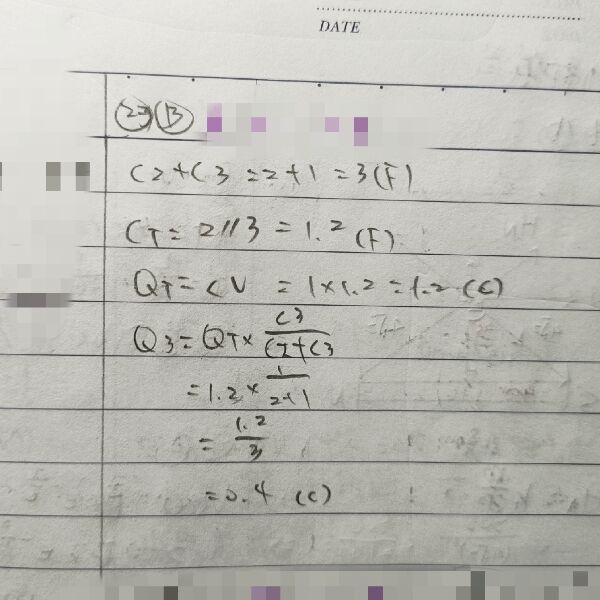 DATE
23 B
C2+C3=2+1=3(F)
CT=2//3=1.2(F)
QT=CV=1×1.2=1.2(C)
Q3=QT×C3/C2+C3
=1.2×1/2+1
=1.2/3
=0.4(C)